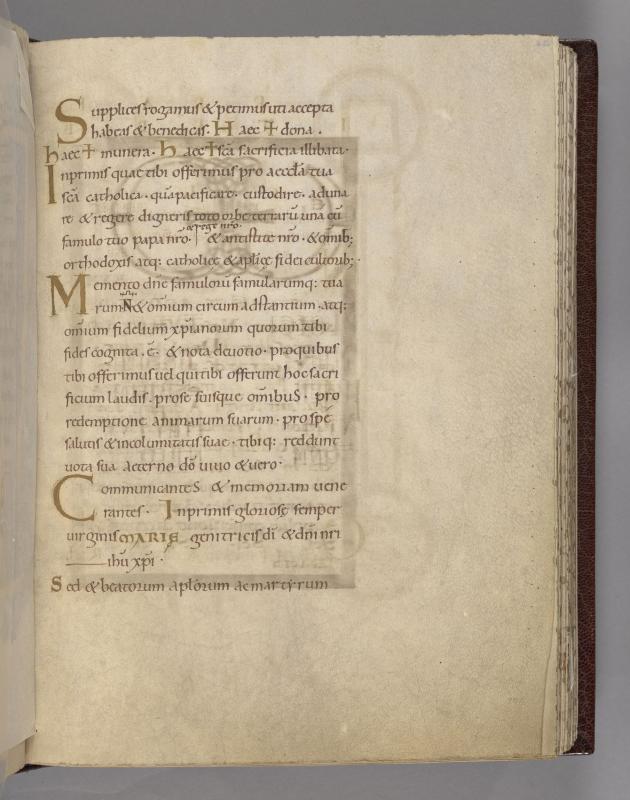 Supplices rogamus & petimus uti accepta
habeas & benedicas. Haec ✝ dona.
haec ✝ munera. haec ✝ sc̄a sacrificia illibata.
Inprimis quae tibi offerimus pro aecclā tua
sc̄a catholica. quā pacificare. custodire. aduna
re & regere digneris toto orbe terrarū unā cū
& rege nr̄o.
famulo tuo papa nr̄o. & antistite nr̄o. & om̄ib;
orthodoxis atq: catholicę & aplicę fidei cultorib;.
Memento dn̄e famulorū famularumq: tua
rum N & omnium circum adstantium. atq:
om̄ium fidelium xp̄ianorum quorum tibi
fides cognita .ē. & nota deuotio. pro quibus
tibi offerimus uel qui tibi offerunt hoc sacri
ficium laudis. pro se suisque om̄ibuS. pro
redemptione animarum suarum. pro spē
salutis & incolumitatis suae. tibiq: reddunt
uota sua aeterno dō uiuo & uero.
CommunicanteS & memoriam uene
rantes. Inprimis gloriosę semper
uirginis MARIĘ genitricis dī & dn̄i nr̄i
ihū xp̄i.
Sed & beatorum aplōrum ac martyrum